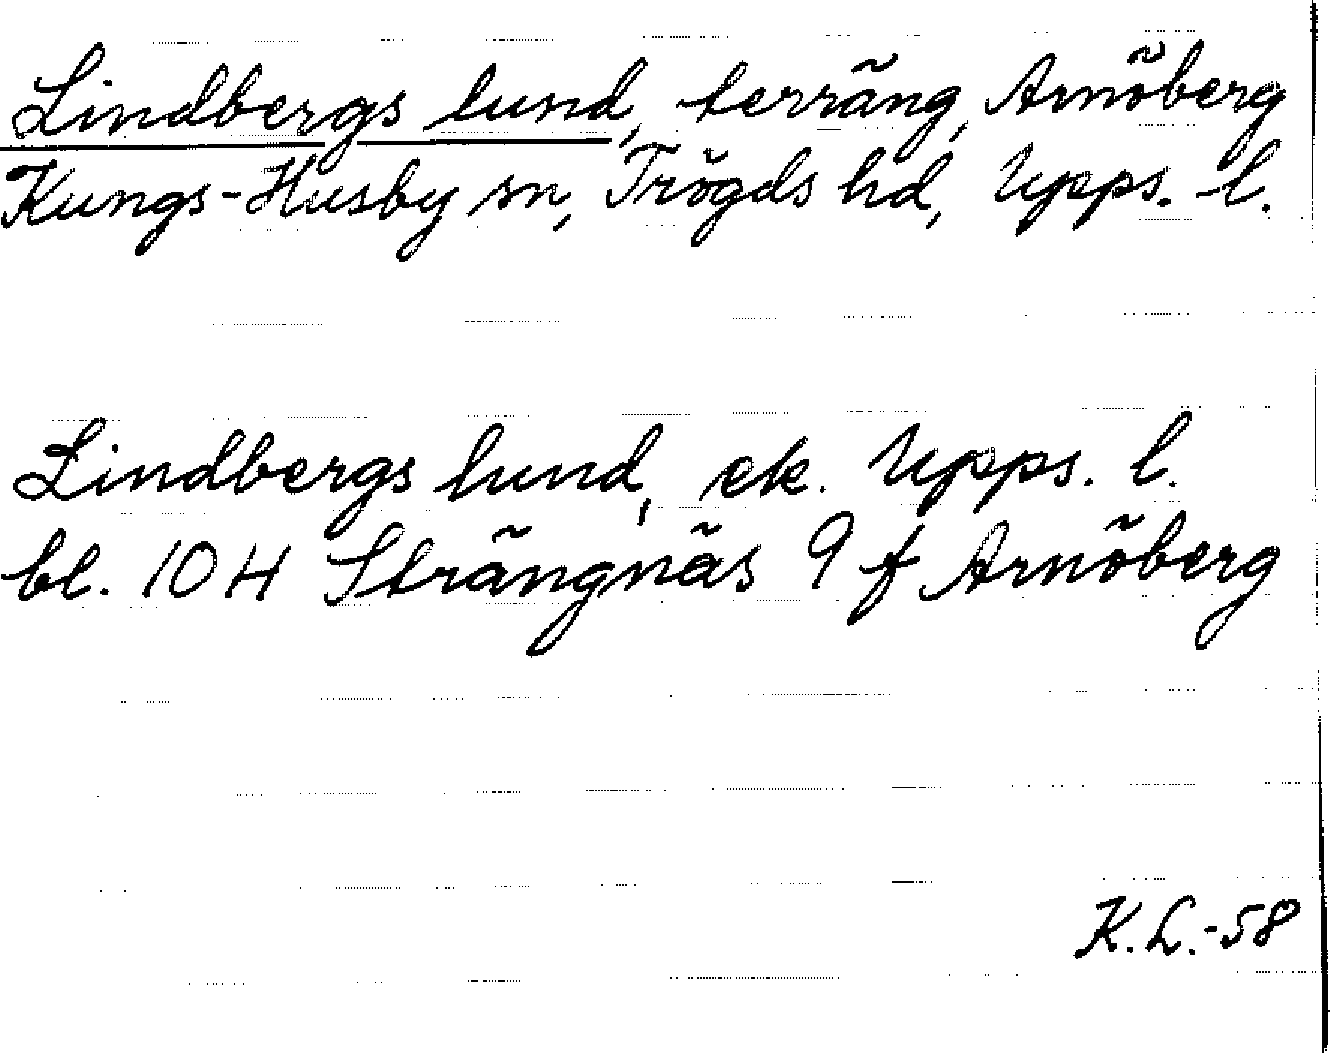 Lindbergs lund, terräng, Arnöberg
Kungs-Husby sn, Trögds hd, Upps. l.
Lindbergs lund, ek. Upps. l.
bl. 10 H Strängnäs 9 f Arnöberg
K.L.-58